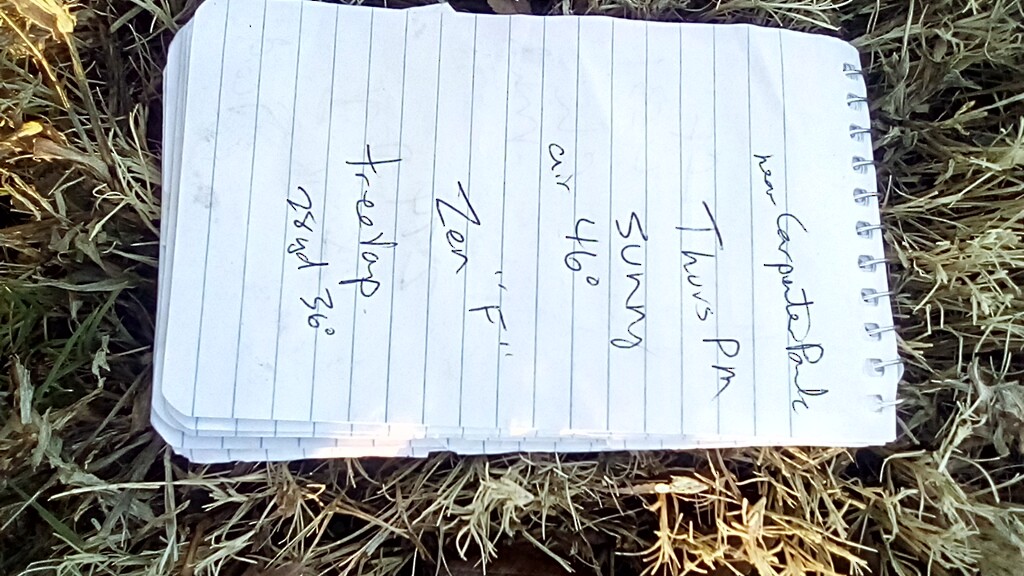 near Carpenter Park
Thurs PM
Sunny
air 46°
"F"
Zen
tree Top
28yd 36°